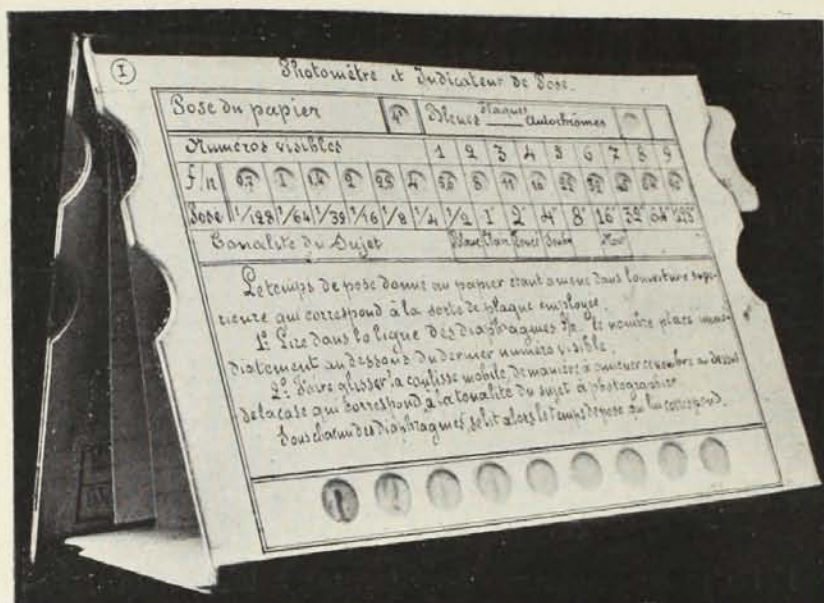 I
Photomètre et Indicateur de Pose.
Pose du papier 4 Bleues Plaques Autochromes
Numéros visibles 1 2 3 4 5 6 7 8 9
f/n 0,7 1 1,4 2 2,8 4 5,6 8 11 16 22 32 45 64
Pose 1/128 1/64 1/32 1/16 1/8 1/4 1/2 1" 2" 4" 8" 16" 32" 64" 128"
Tonalité du Sujet Blanc Clair Foncé Sombre Noir
Le temps de pose donné au papier étant amené dans l'ouverture supé-
rieure qui correspond à la sorte de plaque employée.
1º Lire dans la ligne des diaphragmes f/n le nombre placé immé-
diatement au dessous du dernier numéro visible.
2º Faire glisser la coulisse mobile, de manière à amener ce nombre au dessus
de la case qui correspond à la tonalité du sujet à photographier
Sous chacun des diaphragmes, se lit alors le temps de pose qui lui correspond.
1 2